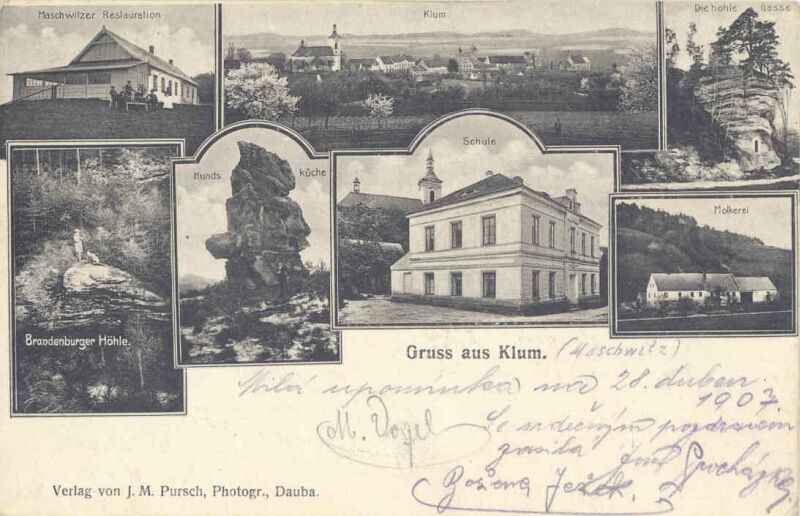 Maschwitzer Restauration
Klum
Die hohle Gasse
Hunds küche
Schule
Molkerei
Brandenburger Höhle.
Gruss aus Klum. (Maschwitz)
Milá upomínka na 28. duben
1907.
M. Vogel
Se srdečným pozdravem
zasílá Jos. Procházka
Božena Ježek.
Verlag von J. M. Pursch, Photogr., Dauba.